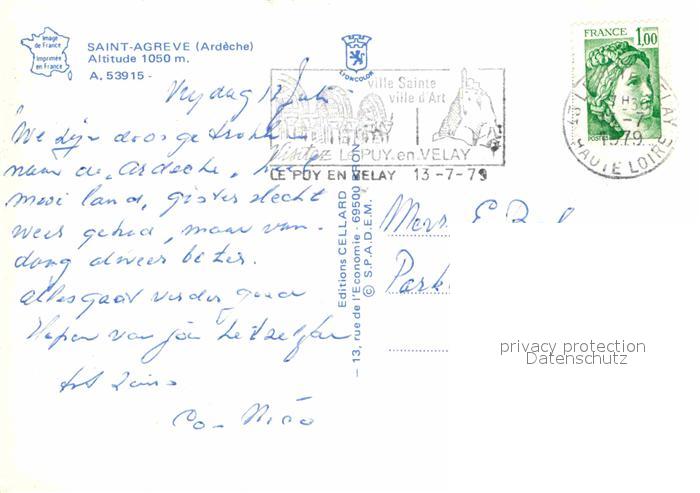 Image
de France
Imprimée
en France
SAINT-AGREVE (Ardèche)
Altitude 1050 m.
A. 53915 -
LYONCOLOR
FRANCE
1,00
POSTES
ville Sainte
ville d'Art
Visitez LE PUY.en.VELAY
LE PUY EN VELAY 13-7-79
43 LE VELAY
-7
1979
HAUTE LOIRE
Vrydag 13 Juli
We zijn doorgetrokken
naar de Ardèche,
mooi land, gister slecht
weer gehad, maar van-
daag alweer beter.
alles gaat verder goed
Hopen van jou hetzelfde
tot ziens
Co - Nico
Editions CELLARD
- 13, rue de l'Economie - 69500 BRON
© S.P.A.D.E.M.
Mevr.
Park
privacy protection
Datenschutz